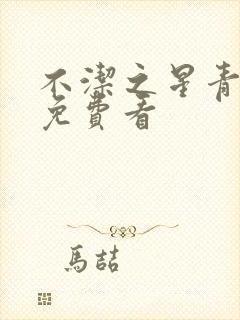 不潔之星青
免費看
馬喆